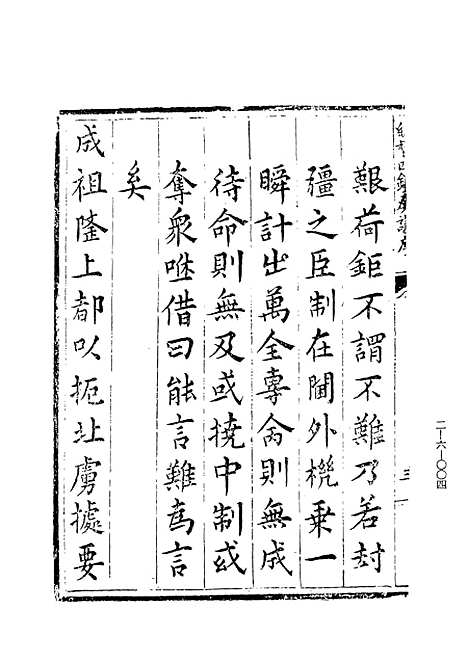 艱荷鉅不謂不難乃若封
疆之臣制在閫外機乗一
瞬計出萬全專制則無成
待命則無及或撓中制或
奪衆咻借曰能言難為言
矣
成祖隆上都以扼北虜據要
三
二-六-〇〇四